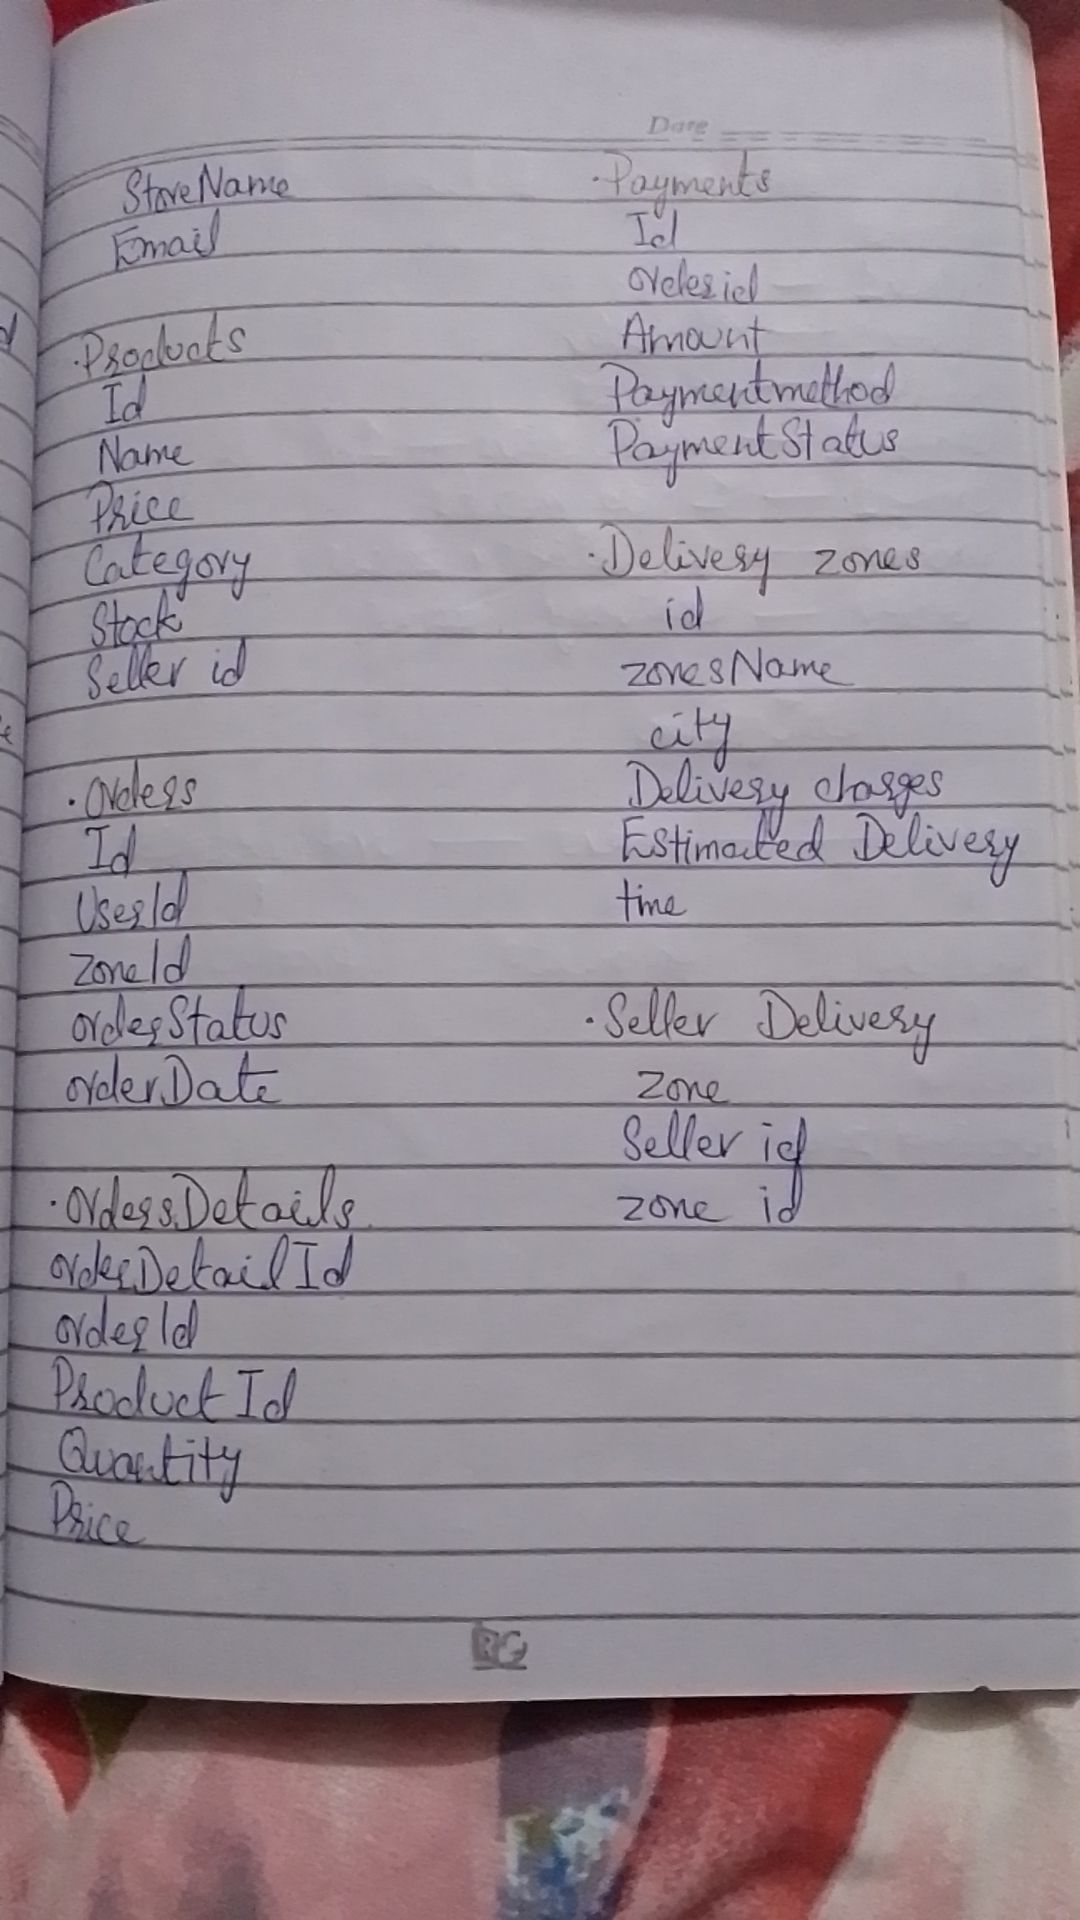 Date
StoreName
Email
·Products
Id
Name
Price
Category
Stock
Seller id
·orders
Id
UserId
zoneId
orderStatus
orderDate
·ordersDetails
orderDetailId
orderId
ProductId
Quantity
Price
·Payments
Id
orderid
Amount
Paymentmethod
PaymentStatus
·Delivery zones
id
zonesName
city
Delivery charges
Estimated Delivery
time
·Seller Delivery
zone
Seller id
zone id